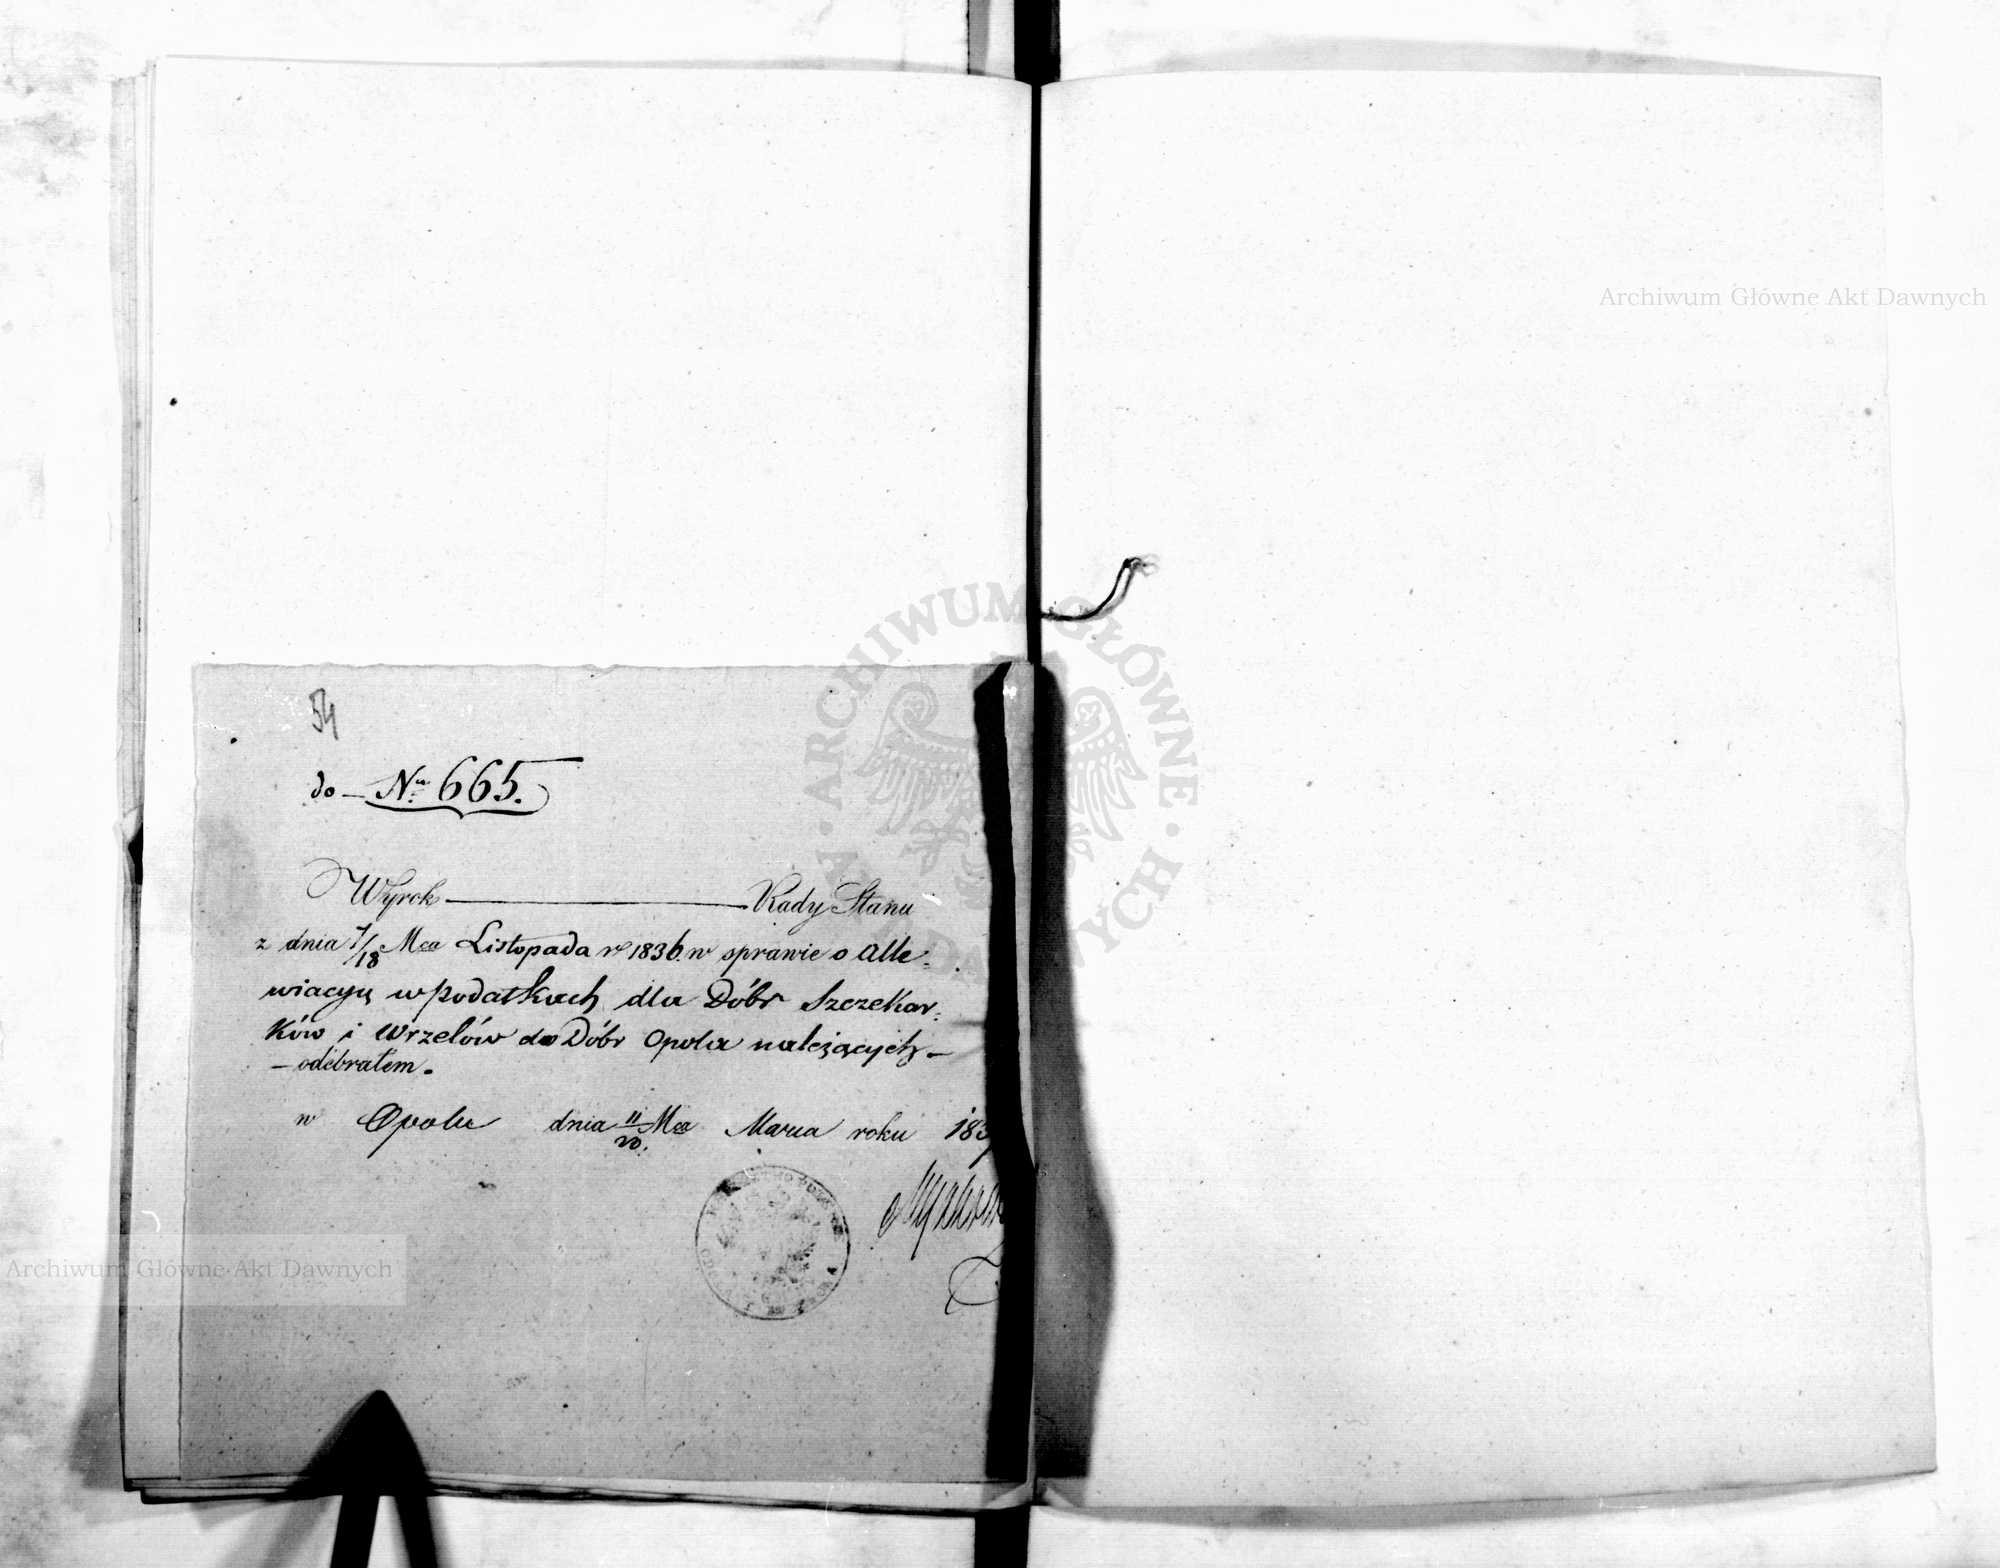 Archiwum Główne Akt Dawnych
ARCHIWUM GŁÓWNE AKT DAWNYCH
54
do — Nr. 665.
Wyrok ——— Rady Stanu
z dnia 7/18 Mca Listopada r. 1836. w sprawie o Alle-
wiacyą w podatkach dla Dóbr Szczekar-
ków i Wrzelów do Dóbr Opola należących —
— odebrałem.
w Opolu dnia 11/20. Mca Marca roku 183
Archiwum Główne Akt Dawnych